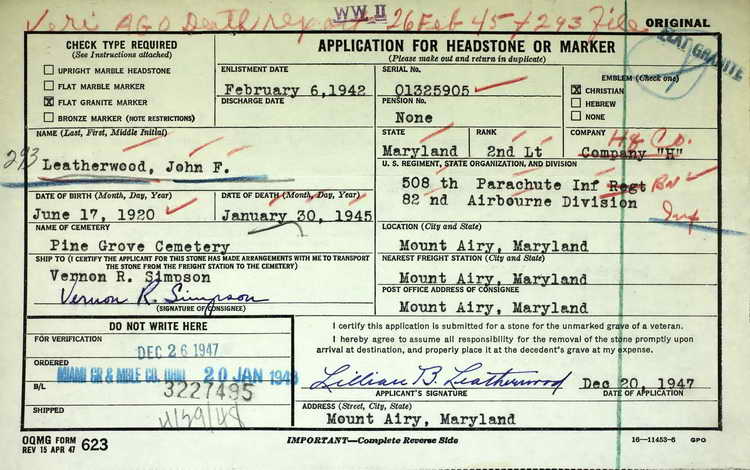 Veri AGO Death report 26 Feb 45 + 293 File
WW II
ORIGINAL
FLAT GRANITE
CHECK TYPE REQUIRED
(See Instructions attached)
UPRIGHT MARBLE HEADSTONE
FLAT MARBLE MARKER
☒ FLAT GRANITE MARKER
BRONZE MARKER (NOTE RESTRICTIONS)
APPLICATION FOR HEADSTONE OR MARKER
(Please make out and return in duplicate)
ENLISTMENT DATE
February 6,1942
DISCHARGE DATE
SERIAL No.
01325905
PENSION No.
None
EMBLEM (Check one)
☒ CHRISTIAN
HEBREW
NONE
NAME (Last, First, Middle Initial)
293
Leatherwood, John F.
STATE
Maryland
RANK
2nd Lt
COMPANY
Hq Co.
Company "H"
U. S. REGIMENT, STATE ORGANIZATION, AND DIVISION
508 th Parachute Inf Regt Bn
82 nd Airbourne Division
Inf
DATE OF BIRTH (Month, Day, Year)
June 17, 1920
DATE OF DEATH (Month, Day, Year)
January 30, 1945
NAME OF CEMETERY
Pine Grove Cemetery
LOCATION (City and State)
Mount Airy, Maryland
SHIP TO (I CERTIFY THE APPLICANT FOR THIS STONE HAS MADE ARRANGEMENTS WITH ME TO TRANSPORT
THE STONE FROM THE FREIGHT STATION TO THE CEMETERY)
Vernon R. Simpson
Vernon R. Simpson
(SIGNATURE OF CONSIGNEE)
NEAREST FREIGHT STATION (City and State)
Mount Airy, Maryland
POST OFFICE ADDRESS OF CONSIGNEE
Mount Airy, Maryland
DO NOT WRITE HERE
FOR VERIFICATION
DEC 26 1947
ORDERED
MIAMI GR & MBLE CO. OHIO 20 JAN 1948
B/L
3227495
SHIPPED
4/29/48
I certify this application is submitted for a stone for the unmarked grave of a veteran.
I hereby agree to assume all responsibility for the removal of the stone promptly upon
arrival at destination, and properly place it at the decedent's grave at my expense.
Lillian B. Leatherwood
APPLICANT'S SIGNATURE
Dec 20, 1947
DATE OF APPLICATION
ADDRESS (Street, City, State)
Mount Airy, Maryland
OQMG FORM 623
REV 15 APR 47
IMPORTANT—Complete Reverse Side
16—11453-6 GPO